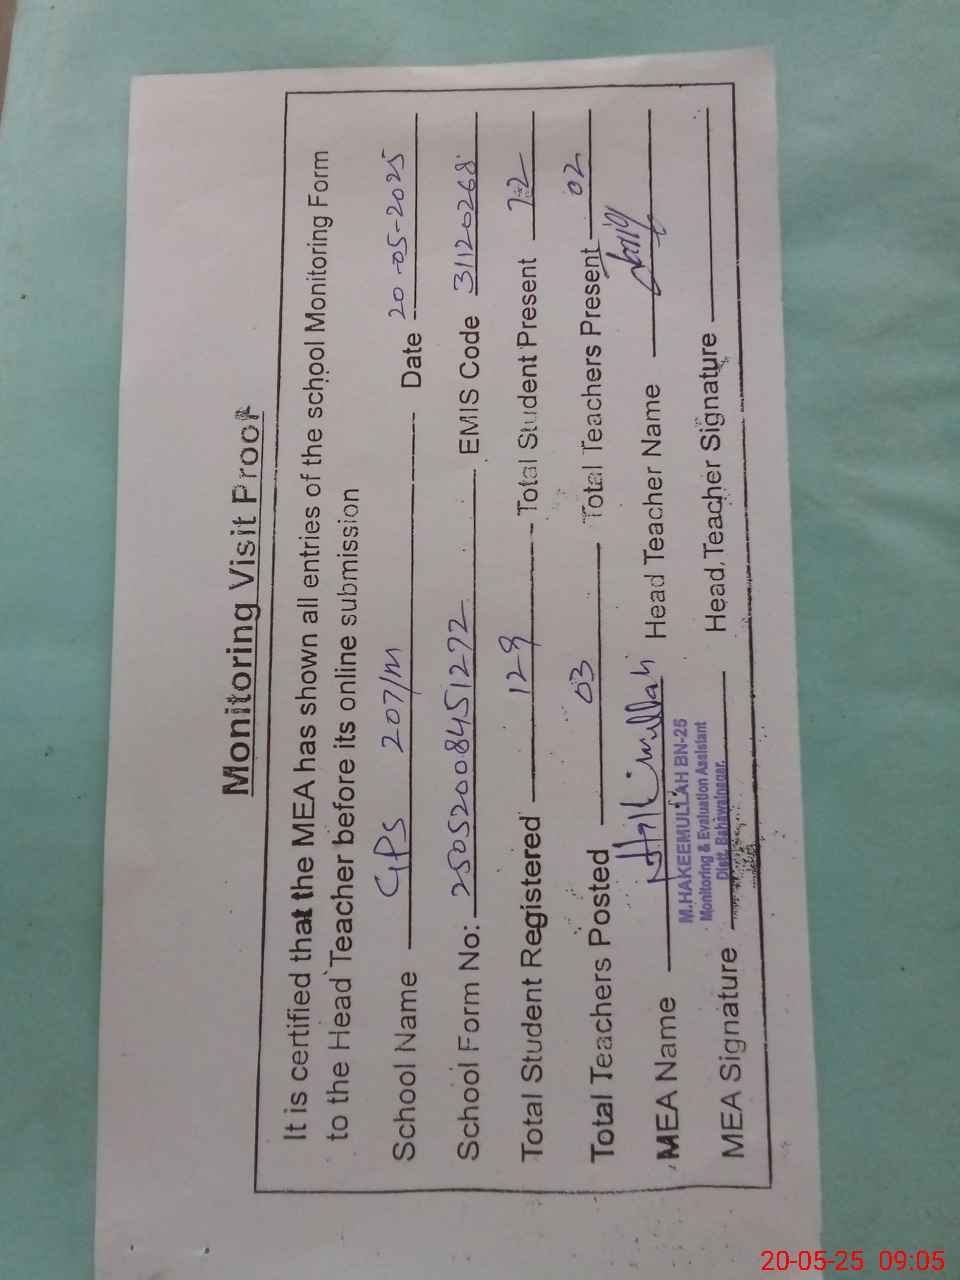 Monitoring Visit Proof
It is certified that the MEA has shown all entries of the school Monitoring Form
to the Head Teacher before its online submission
School Name GPS 207/M Date 20-05-2025
School Form No: 25052008451272 EMIS Code 31120268
Total Student Registered 129 Total Student Present 72
Total Teachers Posted 03 Total Teachers Present 02
MEA Name Hakimullah Head Teacher Name
M.HAKEEMULLAH BN-25
Monitoring & Evaluation Assistant
Distt. Bahawalnagar.
MEA Signature Head Teacher Signature
20-05-25 09:05